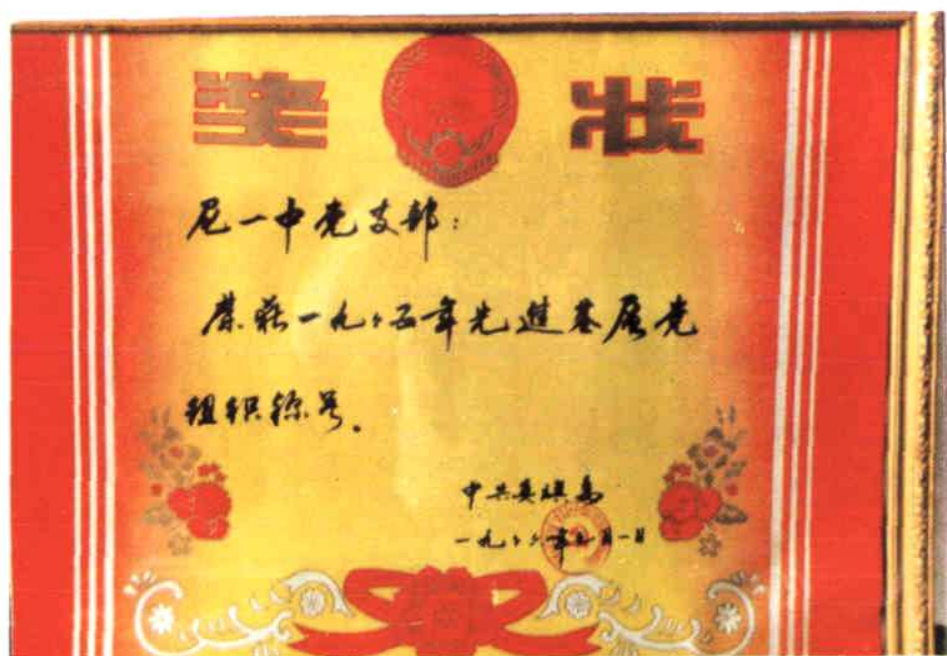 奖状
尼一中党支部:
荣获一九八五年先进基层党
组织称号。
中共
一九八六年七月一日